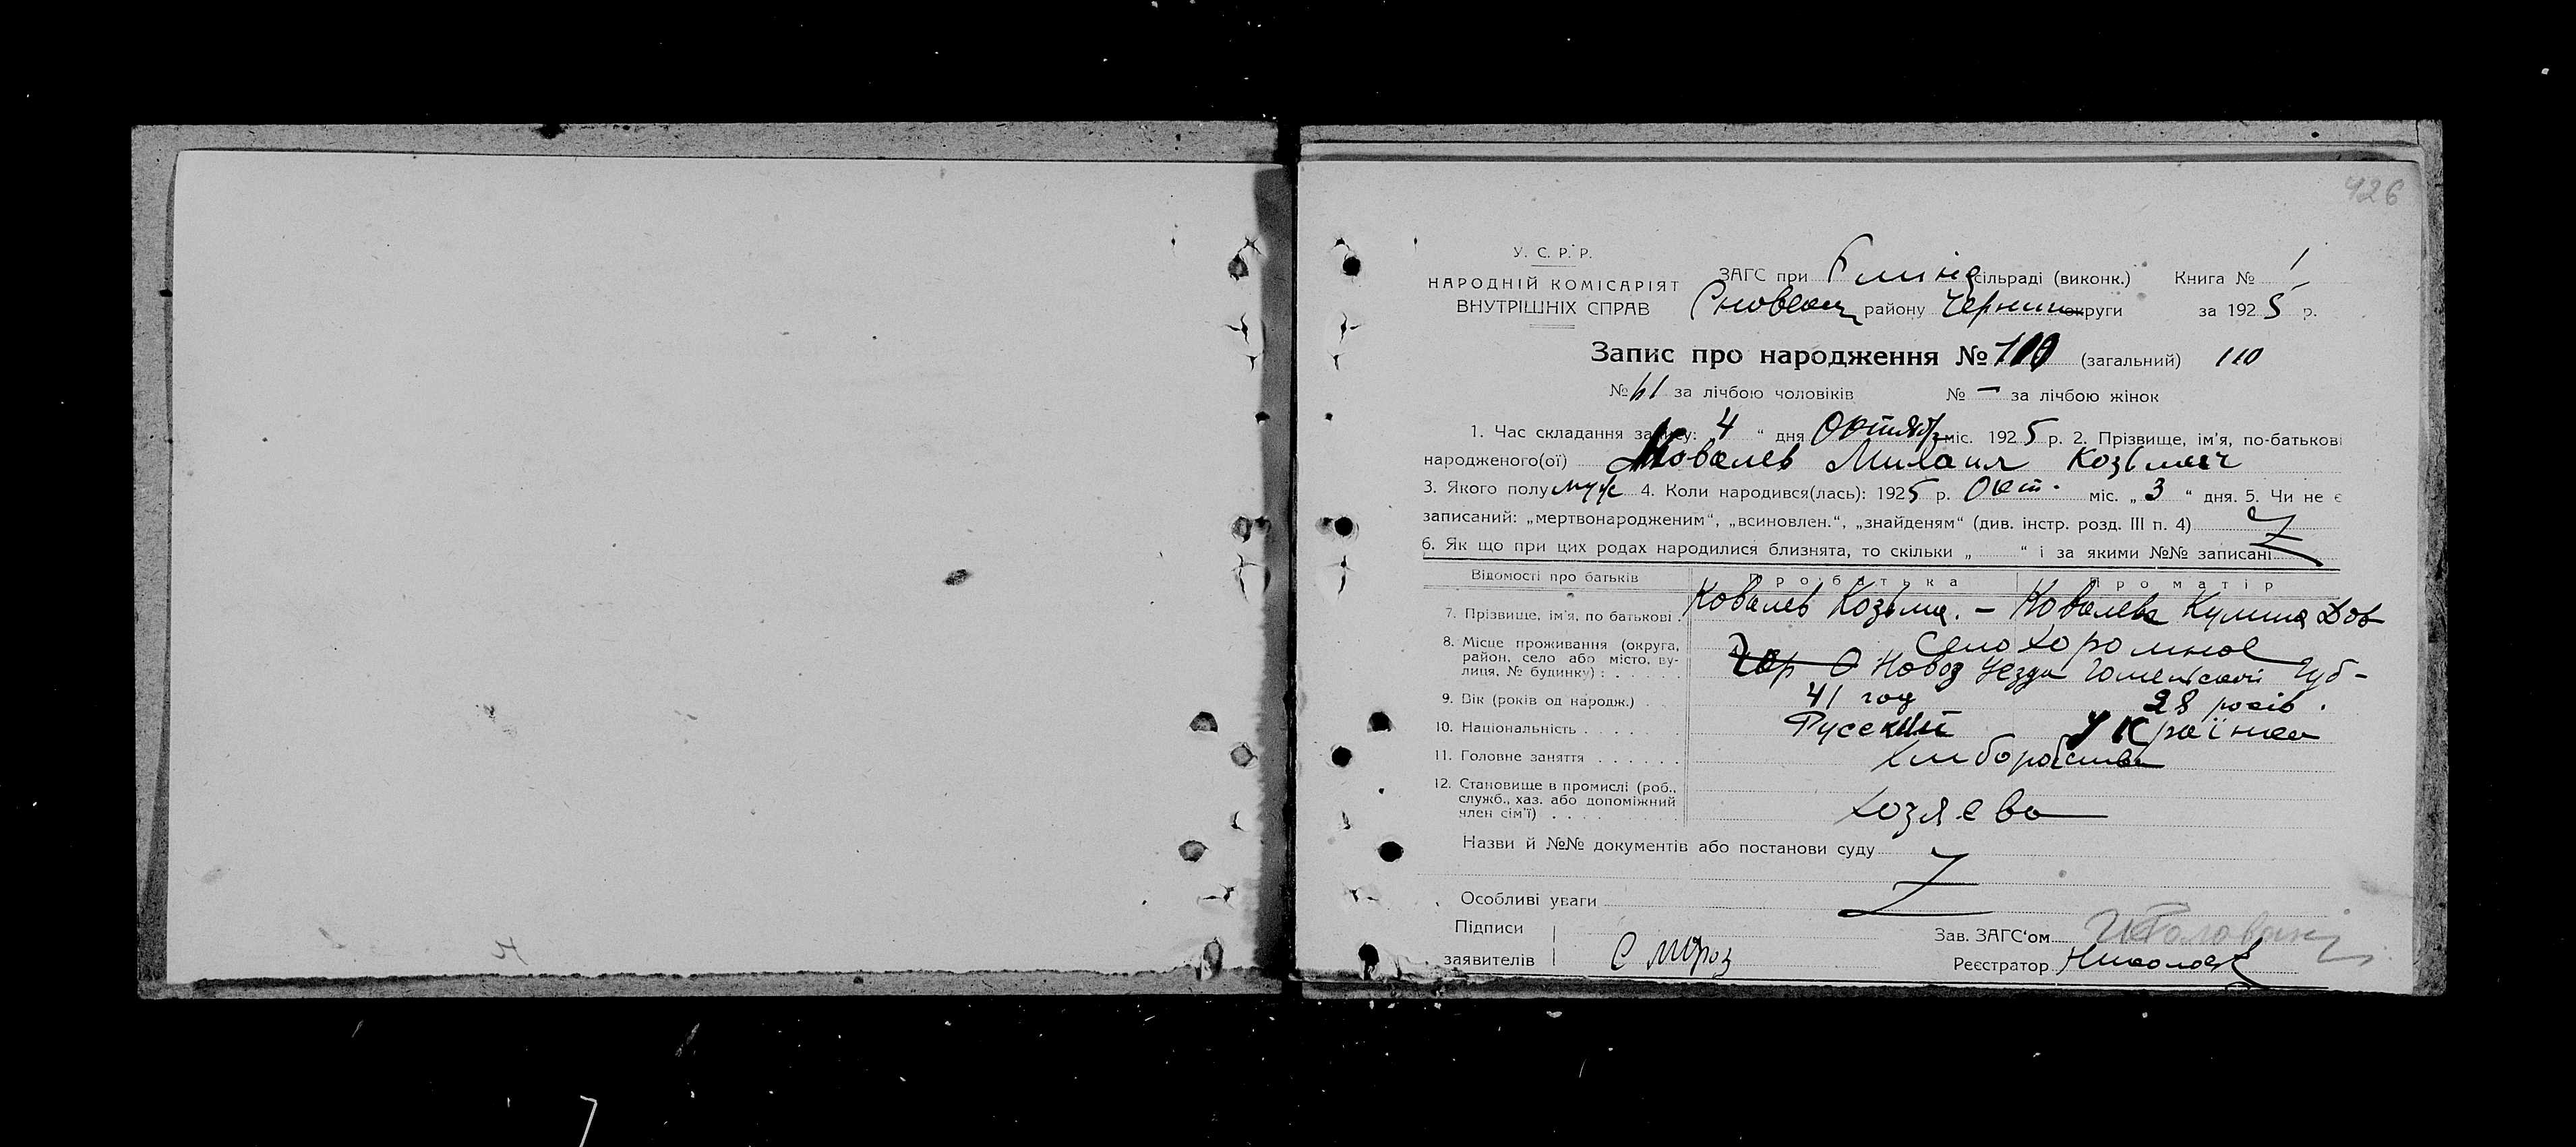 426
У. С. Р. Р.
НАРОДНІЙ КОМІСАРІЯТ
ВНУТРІШНІХ СПРАВ
ЗАГС при сільраді (виконк.) Книга № 1
району Черниг округи за 1925 р.
Запис про народження № 110 (загальний) 110
№ 61 за лічбою чоловіків № — за лічбою жінок
1. Час складання запису: 4 “ дня Октяб міс. 1925 р. 2. Прізвище, ім'я, по-батькові
народженого(ої) Ковалев Михаил Козьмич
3. Якого полу муж 4. Коли народився(лась): 1925 р. Окт. міс. „ 3 “ дня. 5. Чи не є
записаний: „мертвонародженим“, „всиновлен.“, „знайденям“ (див. інстр. розд. III п. 4) Z
6. Як що при цих родах народилися близнята, то скільки „ “ і за якими №№ записані
Відомості про батьків Про батька Про матір
7. Прізвище, ім'я, по батькові . Ковалев Козьма. – Ковалева Кулина
8. Місце проживання (округа, Село Хоромное
район, село або місто, ву- Новоз Уезда Гомельской Губ-
лиця, № будинку) : . . . . .
9. Вік (років од народж.) . . 41 год 28 років.
10. Національність . . . . . . Русский Українка
11. Головне заняття . . . . . . Хлиборобства
12. Становище в промислі (роб.,
служб., хаз. або допоміжний
член сім'ї) . . . . . . . . . хозяева
Назви й №№ документів або постанови суду
Z
Особливі уваги
Підписи
заявителів С Мороз
Зав. ЗАГС‘ом
Реєстратор